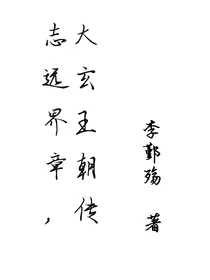 大玄王朝传
志远界章，
李鄞殇 著